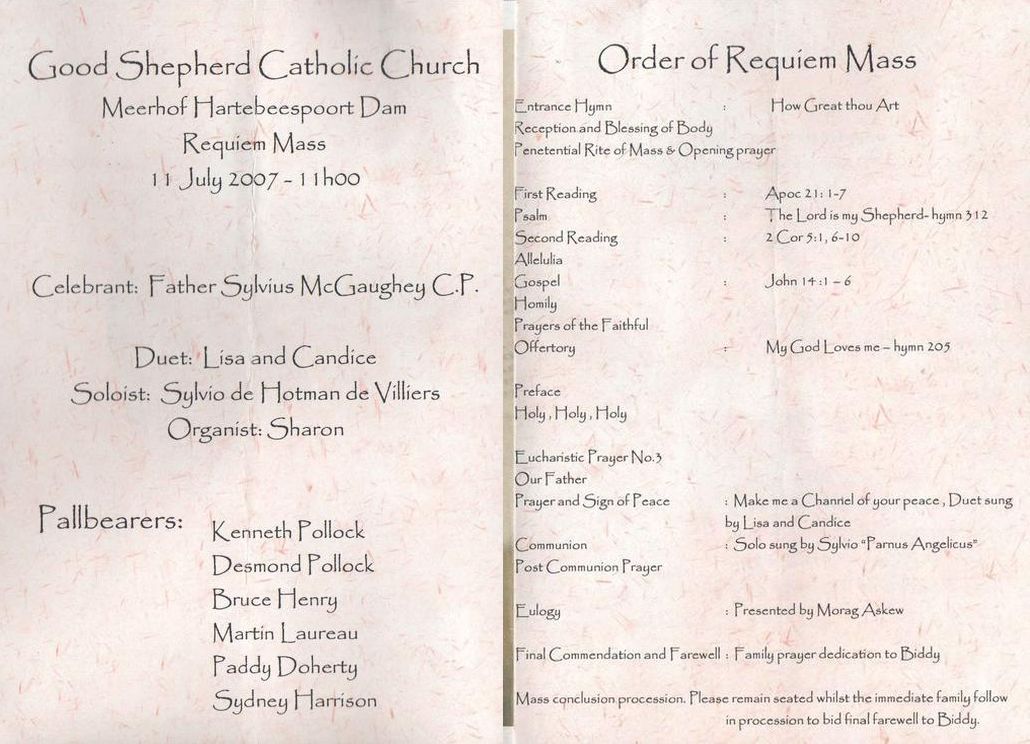 Good Shepherd Catholic Church
Meerhof Hartebeespoort Dam
Requiem Mass
11 July 2007 - 11h00
Celebrant: Father Sylvius McGaughey C.P.
Duet: Lisa and Candice
Soloist: Sylvio de Hotman de Villiers
Organist: Sharon
Pallbearers:
Kenneth Pollock
Desmond Pollock
Bruce Henry
Martin Laureau
Paddy Doherty
Sydney Harrison
Order of Requiem Mass
Entrance Hymn : How Great thou Art
Reception and Blessing of Body
Penetential Rite of Mass & Opening prayer
First Reading : Apoc 21: 1-7
Psalm : The Lord is my Shepherd- hymn 312
Second Reading : 2 Cor 5:1, 6-10
Allelulia
Gospel : John 14:1 – 6
Homily
Prayers of the Faithful
Offertory : My God Loves me – hymn 205
Preface
Holy , Holy , Holy
Eucharistic Prayer No.3
Our Father
Prayer and Sign of Peace : Make me a Channel of your peace , Duet sung
by Lisa and Candice
Communion : Solo sung by Sylvio "Parnus Angelicus"
Post Communion Prayer
Eulogy : Presented by Morag Askew
Final Commendation and Farewell : Family prayer dedication to Biddy
Mass conclusion procession. Please remain seated whilst the immediate family follow
in procession to bid final farewell to Biddy.